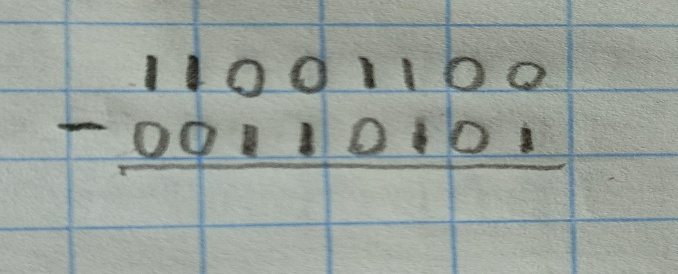 11001100
- 00110101